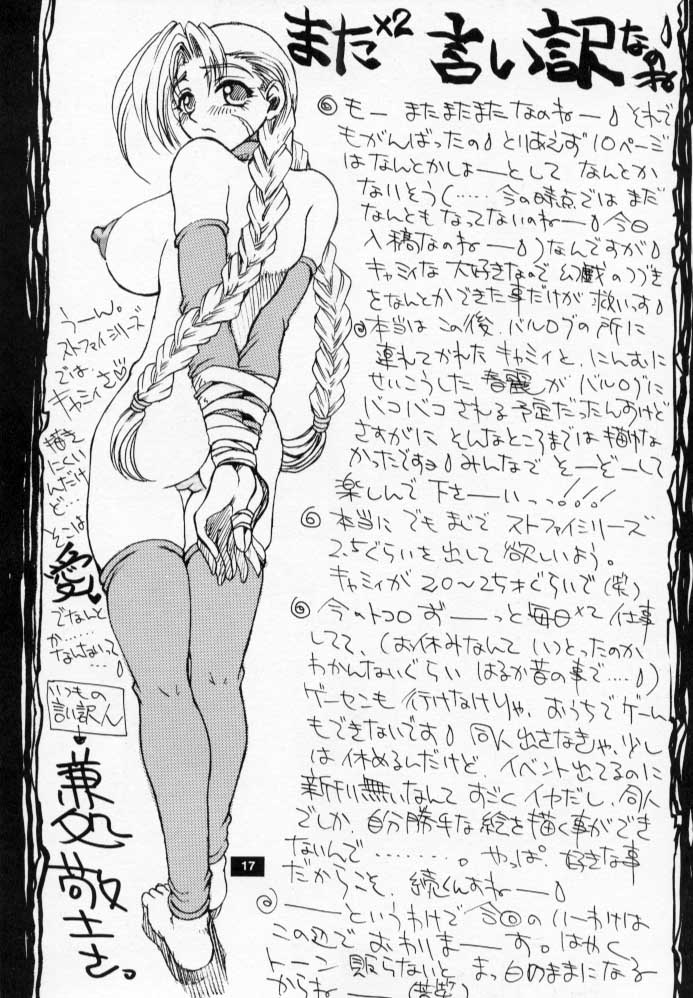 まだ×2 言い訳なのね
◎もー またまたまたなのねー それで
もがんばったの とりあえず10ページ
はなんとかしよーとして なんとか
ないそう(……今の時点ではまだ
なんともなってないのねー 今日
入稿なのねー)なんですが
キャミィな大好きなので 幻戯のつづき
をなんとかできた事だけが 救いっす
◎本当は この後、バルログの所に
連れてかれたキャミィと、にんむに
せいこうした 春麗が バルログに
バコバコ される予定だったんすけど
さすがに そんなところまでは 描けな
かったですョ みんなで そーぞーして
楽しんで 下さーいっっ!!!
◎本当に でも まじで ストファイシリーズ
2.5ぐらいを出して 欲しいよう。
キャミィが 20〜25才ぐらいで(笑)
◎今のトコロ ずーっと毎日×2 仕事
してて、(お休みなんて いつとったのか
わかんないぐらい はるか昔の事で……)
ゲーセンも 行けなけりゃ、おうちでゲーム
もできないです 同人出さなきゃ、少し
は 休めるんだけど、イベント出てるのに
新刊無いなんて すごく イヤだし、同人
でしか、自分勝手な絵を描く事ができ
ないんで………。やっぱ、好きな事
だからこそ、続くんすねー
◎——というわけで 今回の いーわけは
この辺で おわりまーす。はやく
トーン 貼らないと まっ白のままになる
からねー(苦笑)
うーん。
ストファイシリーズ
では、
キャミィさ♡
描き
にくい
んだけ
ど…
そこは
愛
でなんと
か……
なんないって…
いつもの
言い訳人
兼処敬士さ。
17